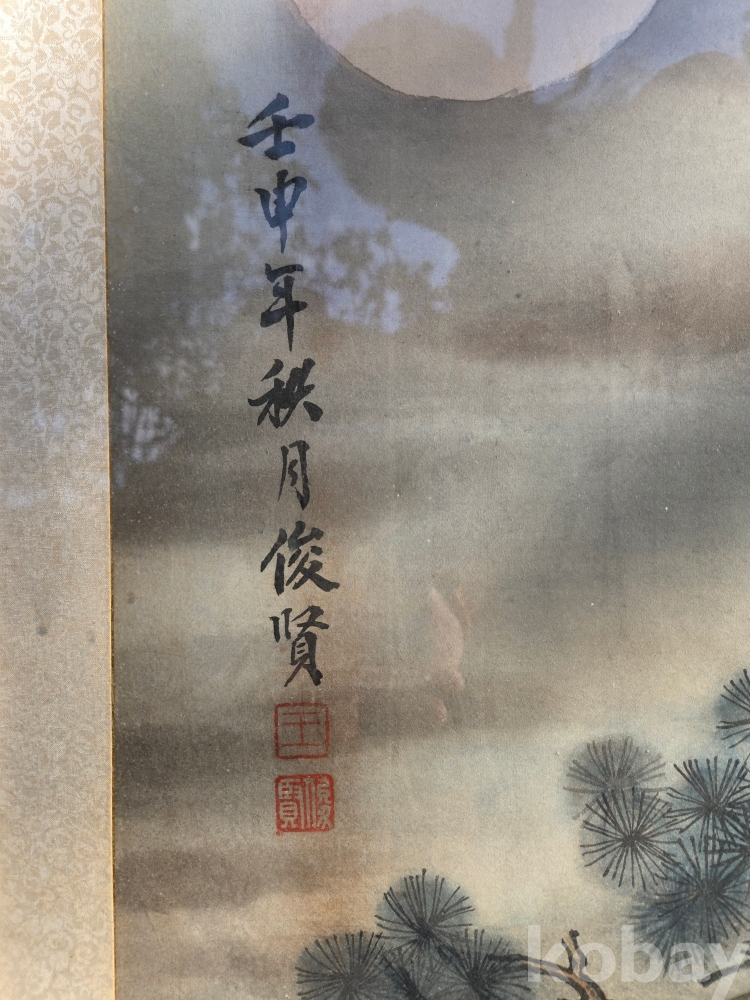 壬申年秋月俊賢
王
俊賢
kobay